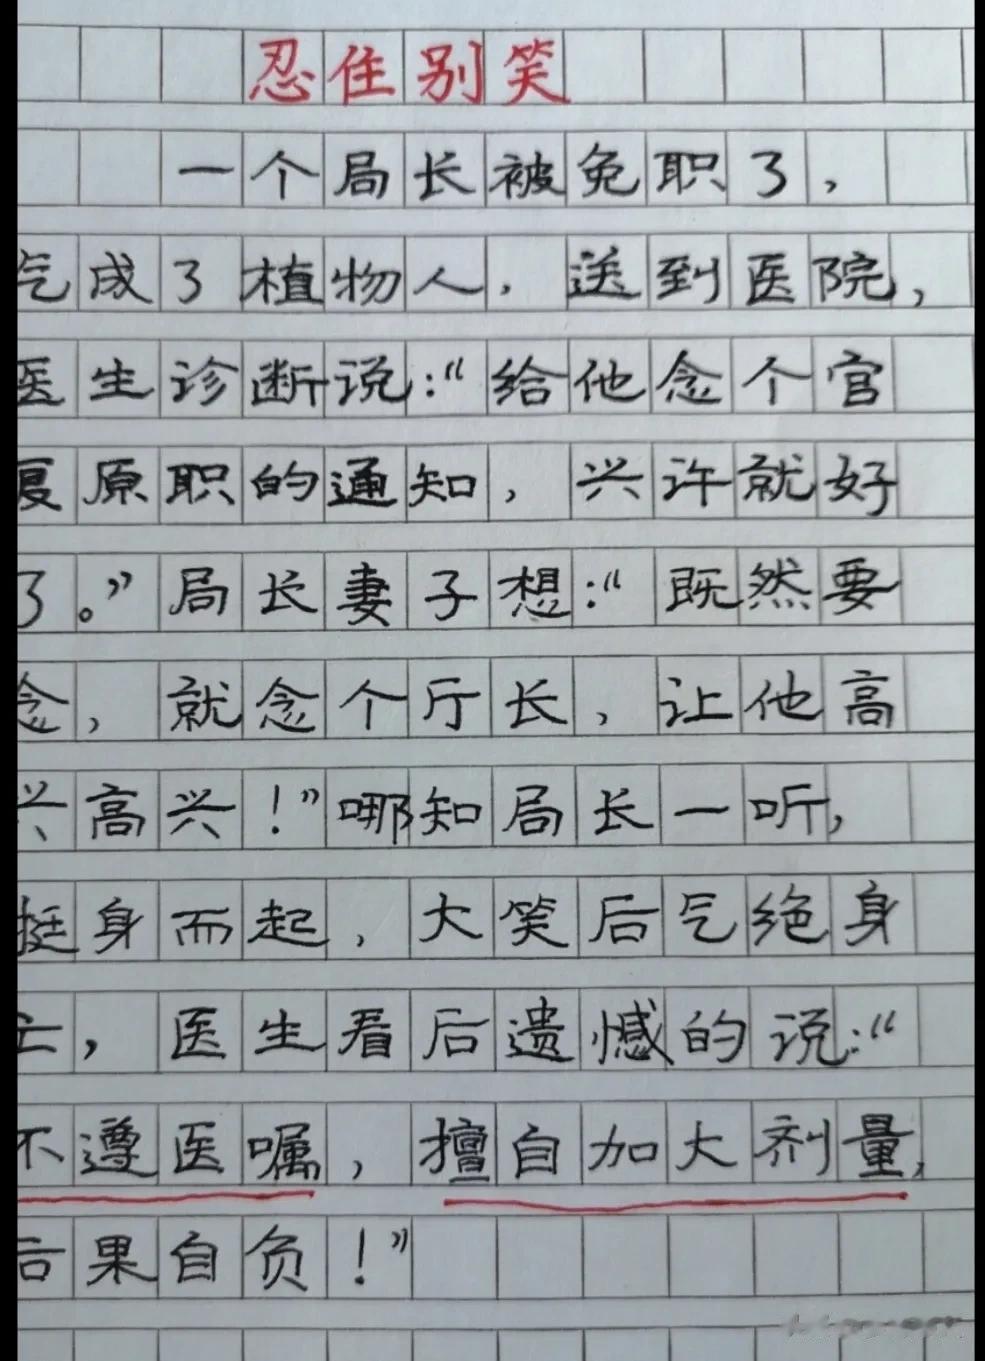 忍住别笑
一个局长被免职了，
气成了植物人，送到医院，
医生诊断说：“给他念个官
复原职的通知，兴许就好
了。”局长妻子想：“既然要
念，就念个厅长，让他高
兴高兴！”哪知局长一听，
挺身而起，大笑后气绝身
亡，医生看后遗憾的说：“
不遵医嘱，擅自加大剂量，
后果自负！”